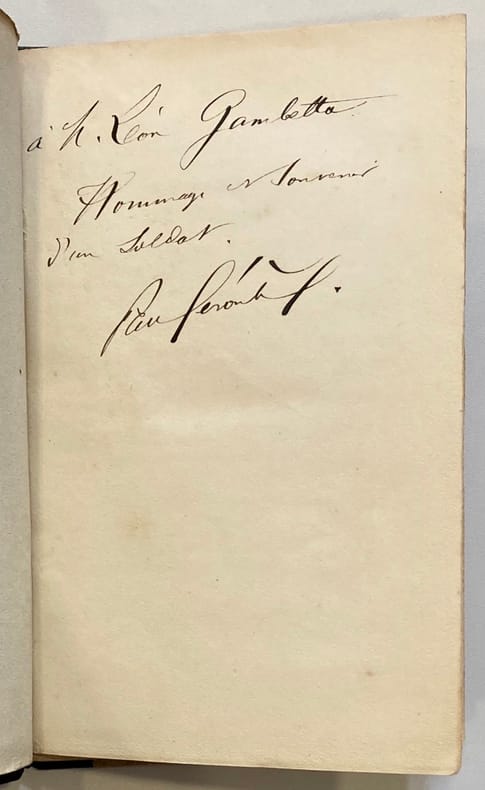 à M. Léon Gambetta
Hommage et Souvenir
d'un Soldat.
Paul Déroulède.